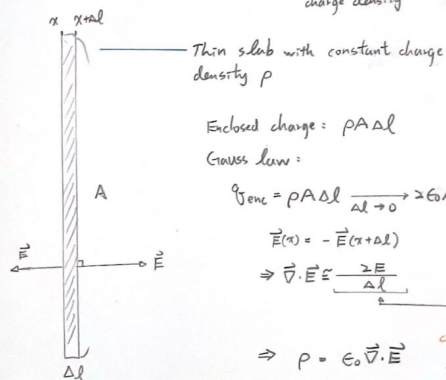 charge density
x x+Δl
Thin slab with constant charge
density ρ
Enclosed charge: ρAΔl
Gauss law:
A
q_enc = ρAΔl →_{Δl→0} 2ϵ₀
E⃗(x) = -E⃗(x+Δl)
E⃗ E⃗
⇒ ∇⃗·E⃗ ≅ 2E/Δl
⇒ ρ = ϵ₀ ∇⃗·E⃗
Δl